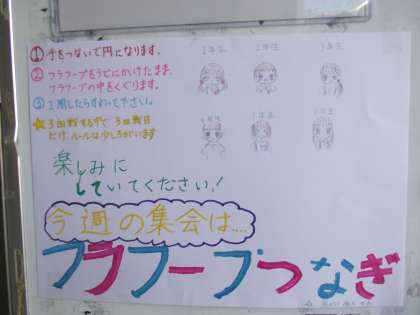 ① 手をつないで円になります。
② フラフープをうでにかけたまま、
フラフープの中をくぐります。
③ 1周したらすわって下さい。
★ 3回戦する中で 3回戦目
だけ、ルールは少しちがいます
楽しみに
していてください!
1年生 2年生 3年生
4年生 5年生 6年生
今週の集会は....
フラフープつなぎ